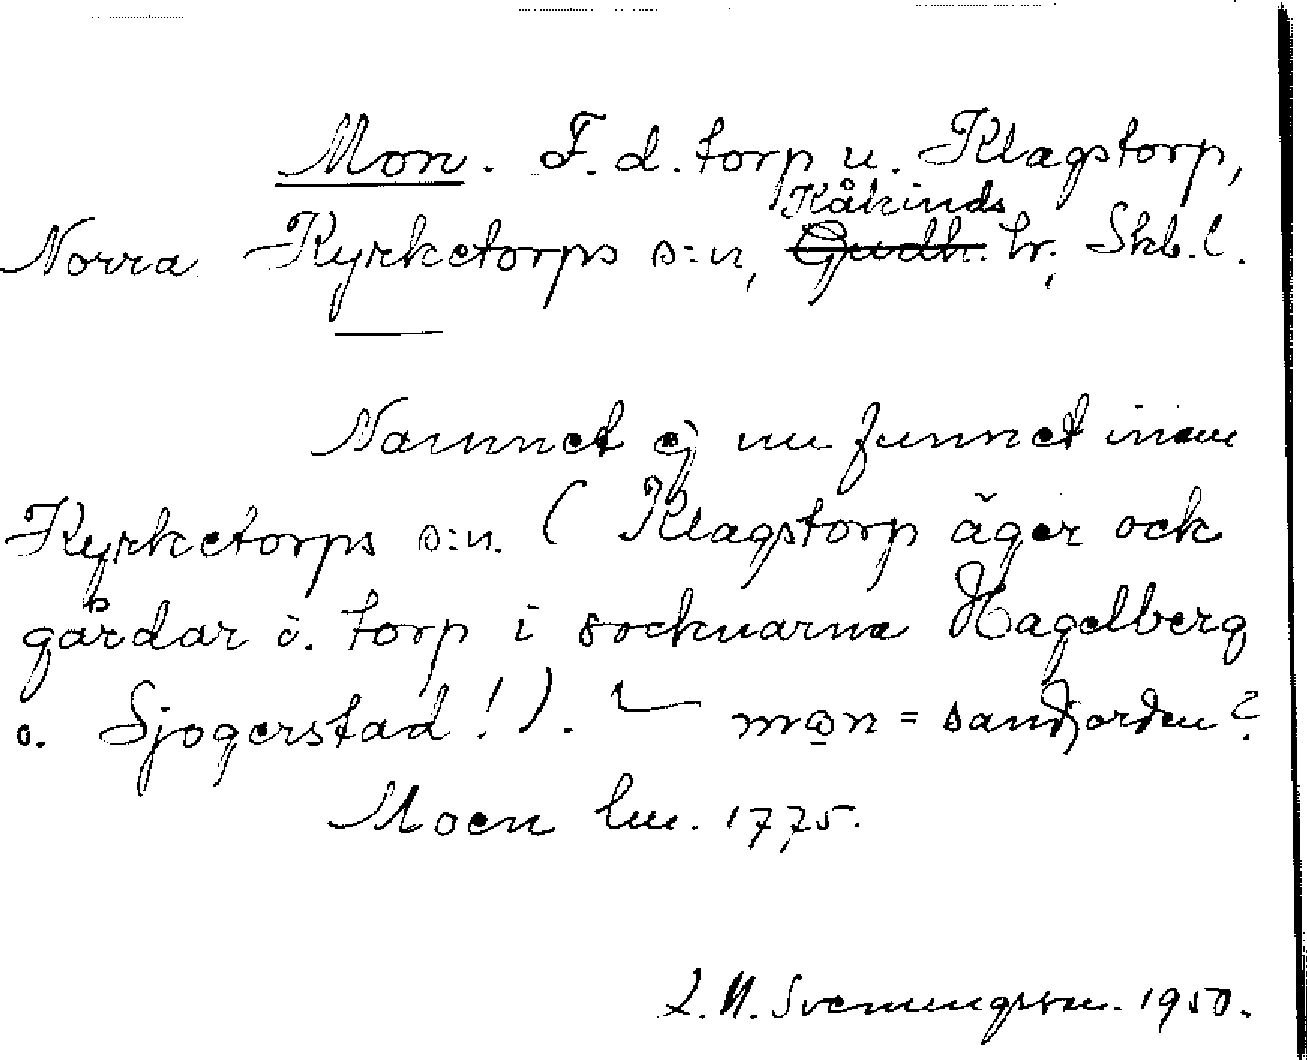 Mon. F. d. torp u. Klagstorp,
Kåkinds
Norra Kyrketorps s:n, Gudh. hr., Skb. l.
Namnet ej nu funnet inom
Kyrketorps s:n. (Klagstorp äger ock
gårdar o. torp i socknarna Hagelberg
o. Sjogerstad!). mon = sandjorden?
Moen lm. 1775.
L. N. Svenungsson. 1950.